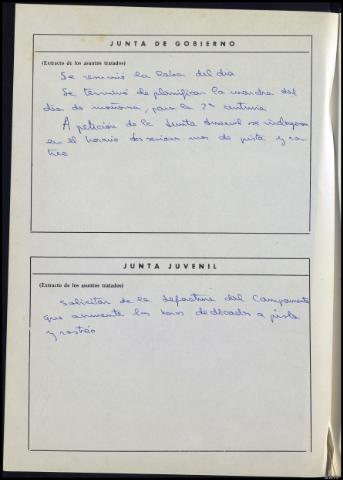 JUNTA DE GOBIERNO
(Extracto de los asuntos tratados)
Se resumió la labor del día
Se terminó de planificar la marcha del
día de mañana, para la 2ª
A petición de la Junta Juvenil se
en el horario dos sesiones mas de pista y ras-
treo
JUNTA JUVENIL
(Extracto de los asuntos tratados)
Solicitar de la Jefactura del Campamento
que aumente las horas dedicadas a pista
y rastreo